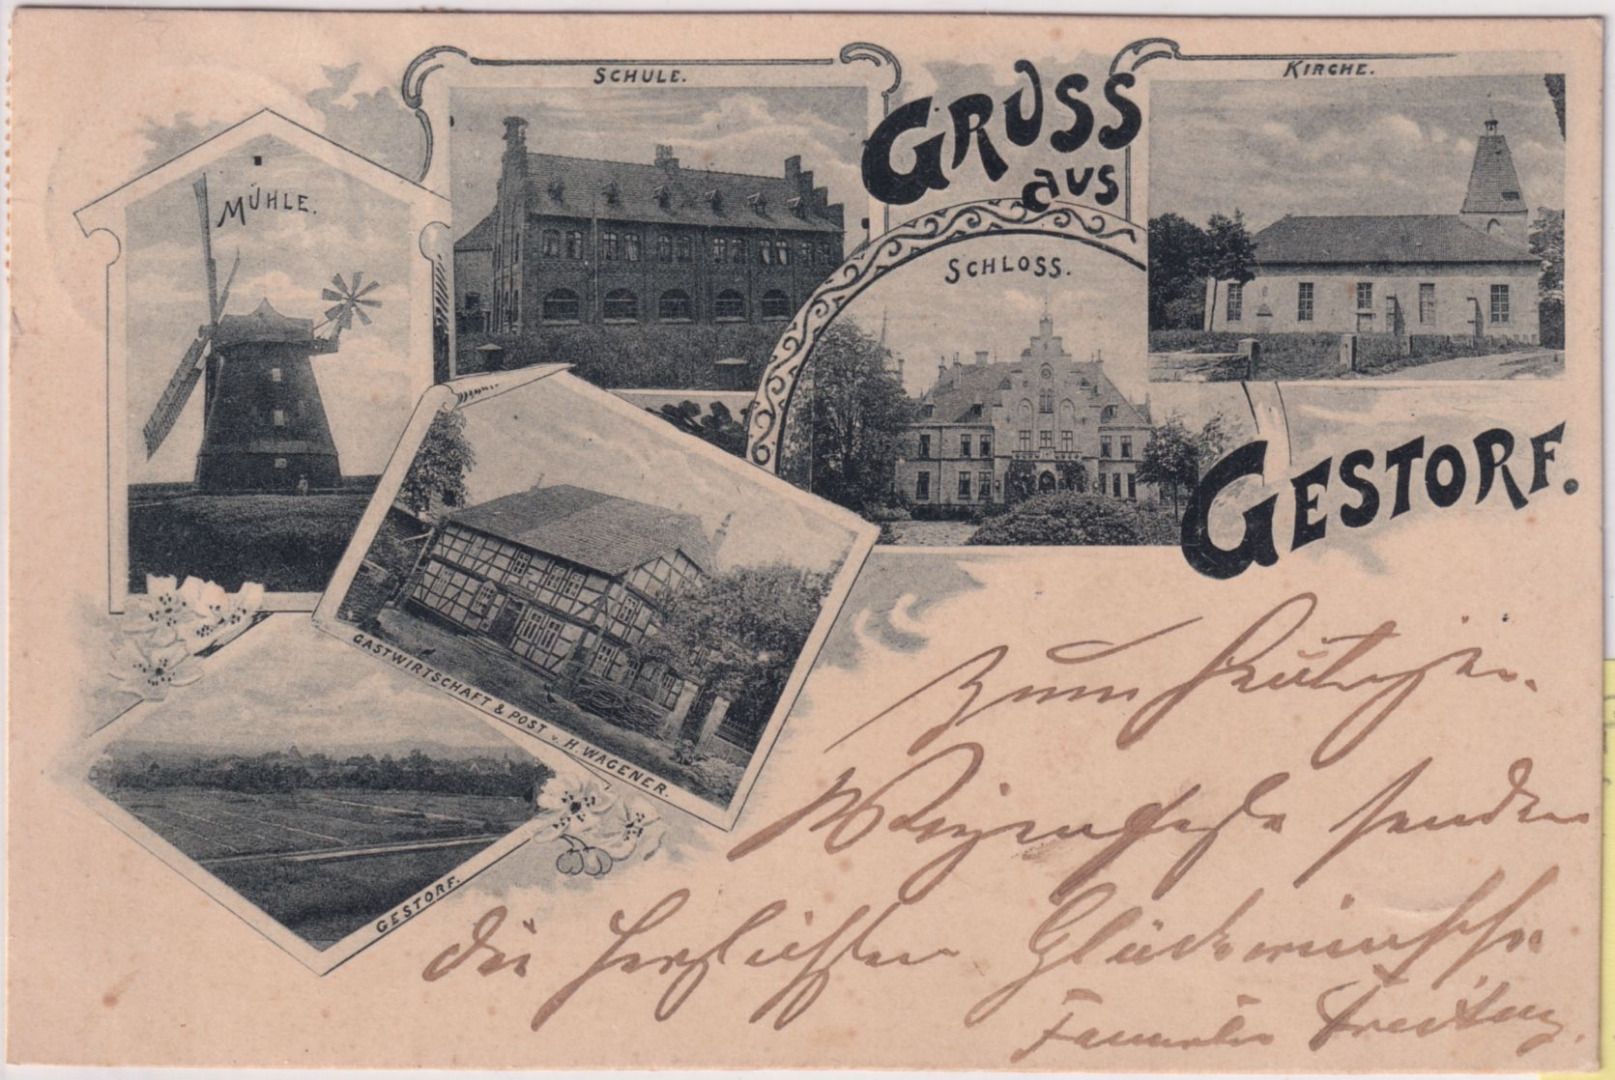 SCHULE.
GRUSS
aus
KIRCHE.
MÜHLE.
SCHLOSS.
GESTORF.
GASTWIRTSCHAFT & POST v. H. WAGENER.
GESTORF.
Zum heutigen
senden
die herzlichsten Glückwünsche
Familie Freitag.